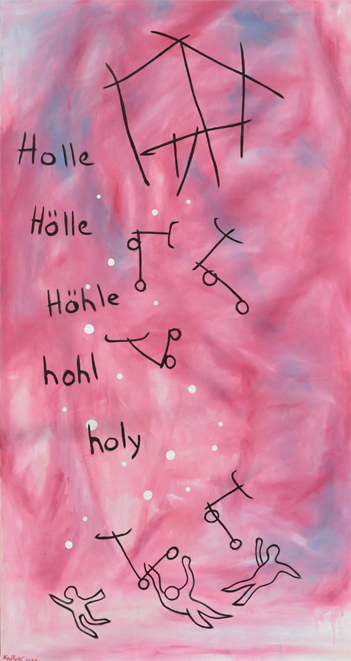 Holle
Hölle
Höhle
hohl
holy